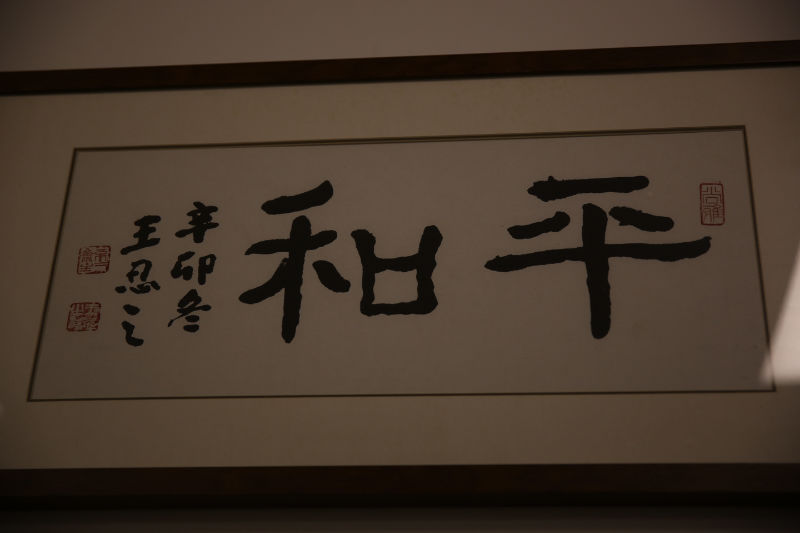 平和
辛卯冬
王忍之